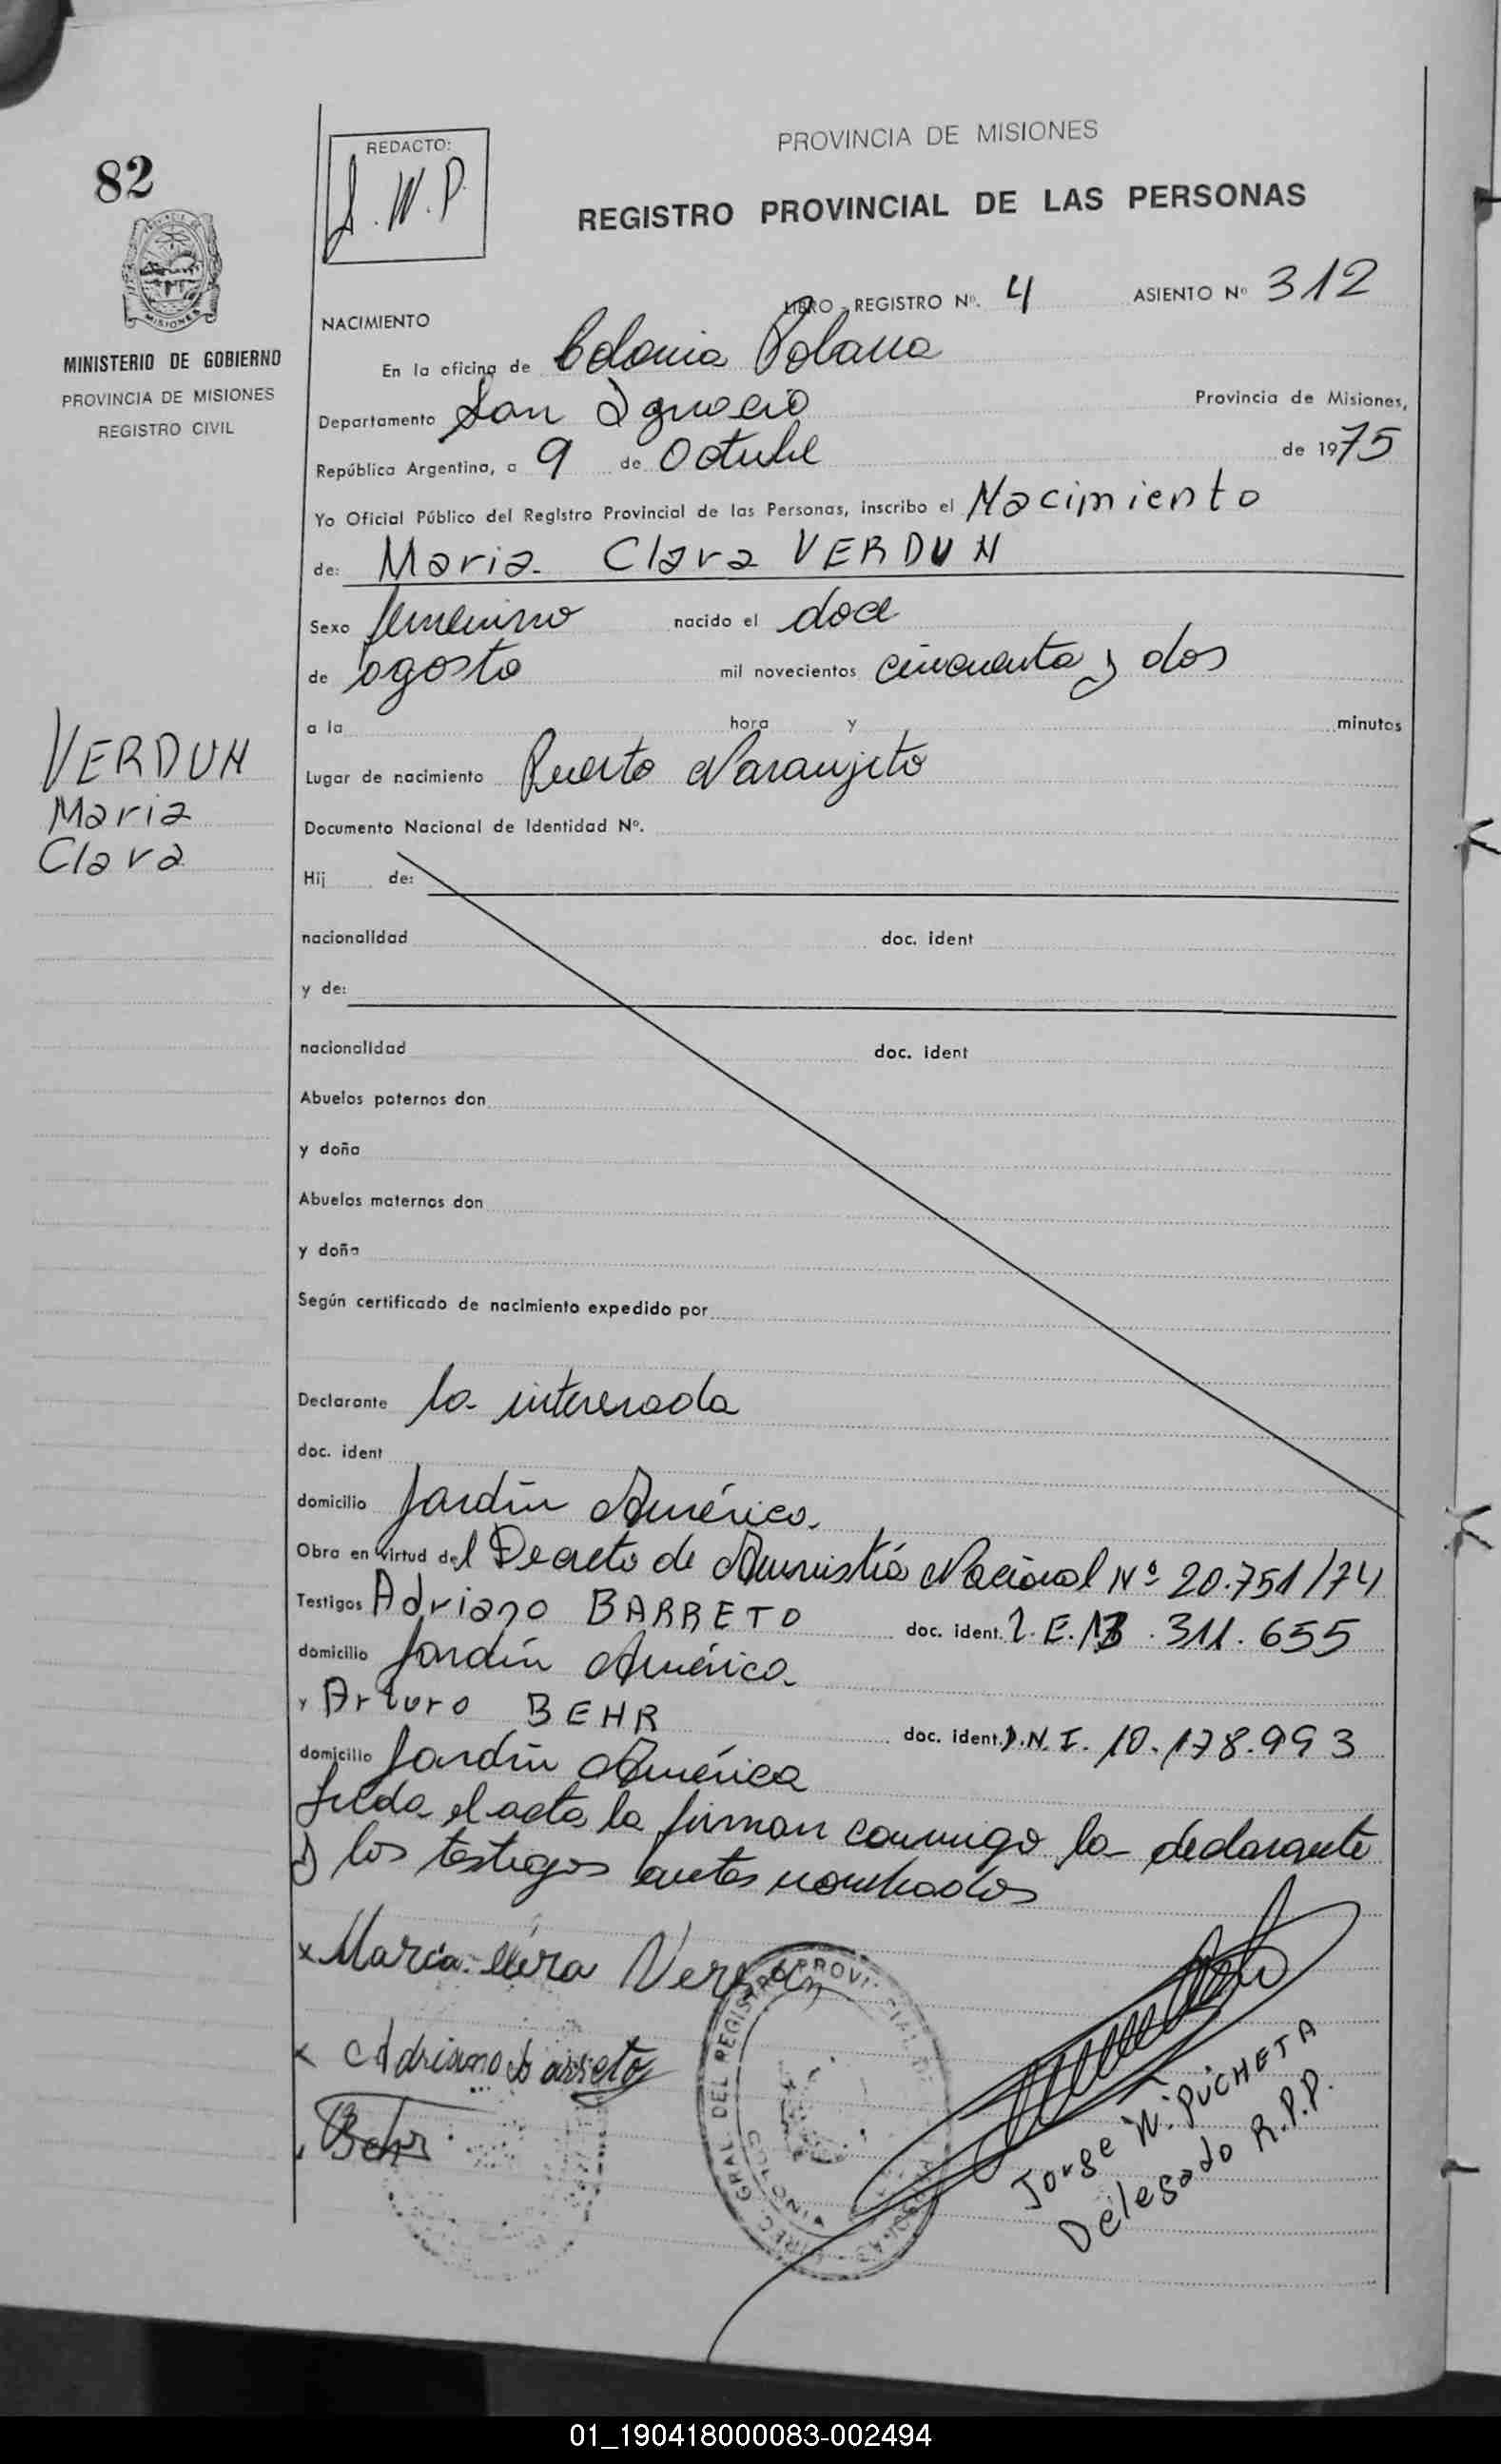 82
MINISTERIO DE GOBIERNO
PROVINCIA DE MISIONES
REGISTRO CIVIL
REDACTO:
J. W. P.
PROVINCIA DE MISIONES
REGISTRO PROVINCIAL DE LAS PERSONAS
LIBRO - REGISTRO Nº. 4 ASIENTO Nº 312
NACIMIENTO
En la oficina de Colonia Polana
Departamento San Ignacio Provincia de Misiones,
República Argentina, a 9 de Octubre de 1975
Yo Oficial Público del Registro Provincial de las Personas, inscribo el Nacimiento
de: Maria Clara VERDUN
Sexo femenino nacido el doce
de agosto mil novecientos cincuenta y dos
a la hora y minutos
VERDUN
Maria
Clara
Lugar de nacimiento Puerto Naranjito
Documento Nacional de Identidad Nº.
Hij de:
nacionalidad doc. ident
y de:
nacionalidad doc. ident
Abuelos paternos don
y doña
Abuelos maternos don
y doña
Según certificado de nacimiento expedido por
Declarante la interesada
doc. ident
domicilio Jardín América
Obra en virtud del Decreto de Amnistía Nacional Nº 20.751/74
Testigos Adriano BARRETO doc. ident. L.E. 13.311.655
domicilio Jardín América
y Arturo BEHR doc. ident. D.N.I. 10.178.993
domicilio Jardín América
Leída el acta la firman conmigo la declarante
y los testigos antes nombrados
x Maria Clara Verdun
x Adriano Barreto
Behr
DIREC. GRAL. DEL REGISTRO PROVINCIAL DE LAS PERSONAS
Jorge W. PUCHETA
Delegado R.P.P.
01_190418000083-002494